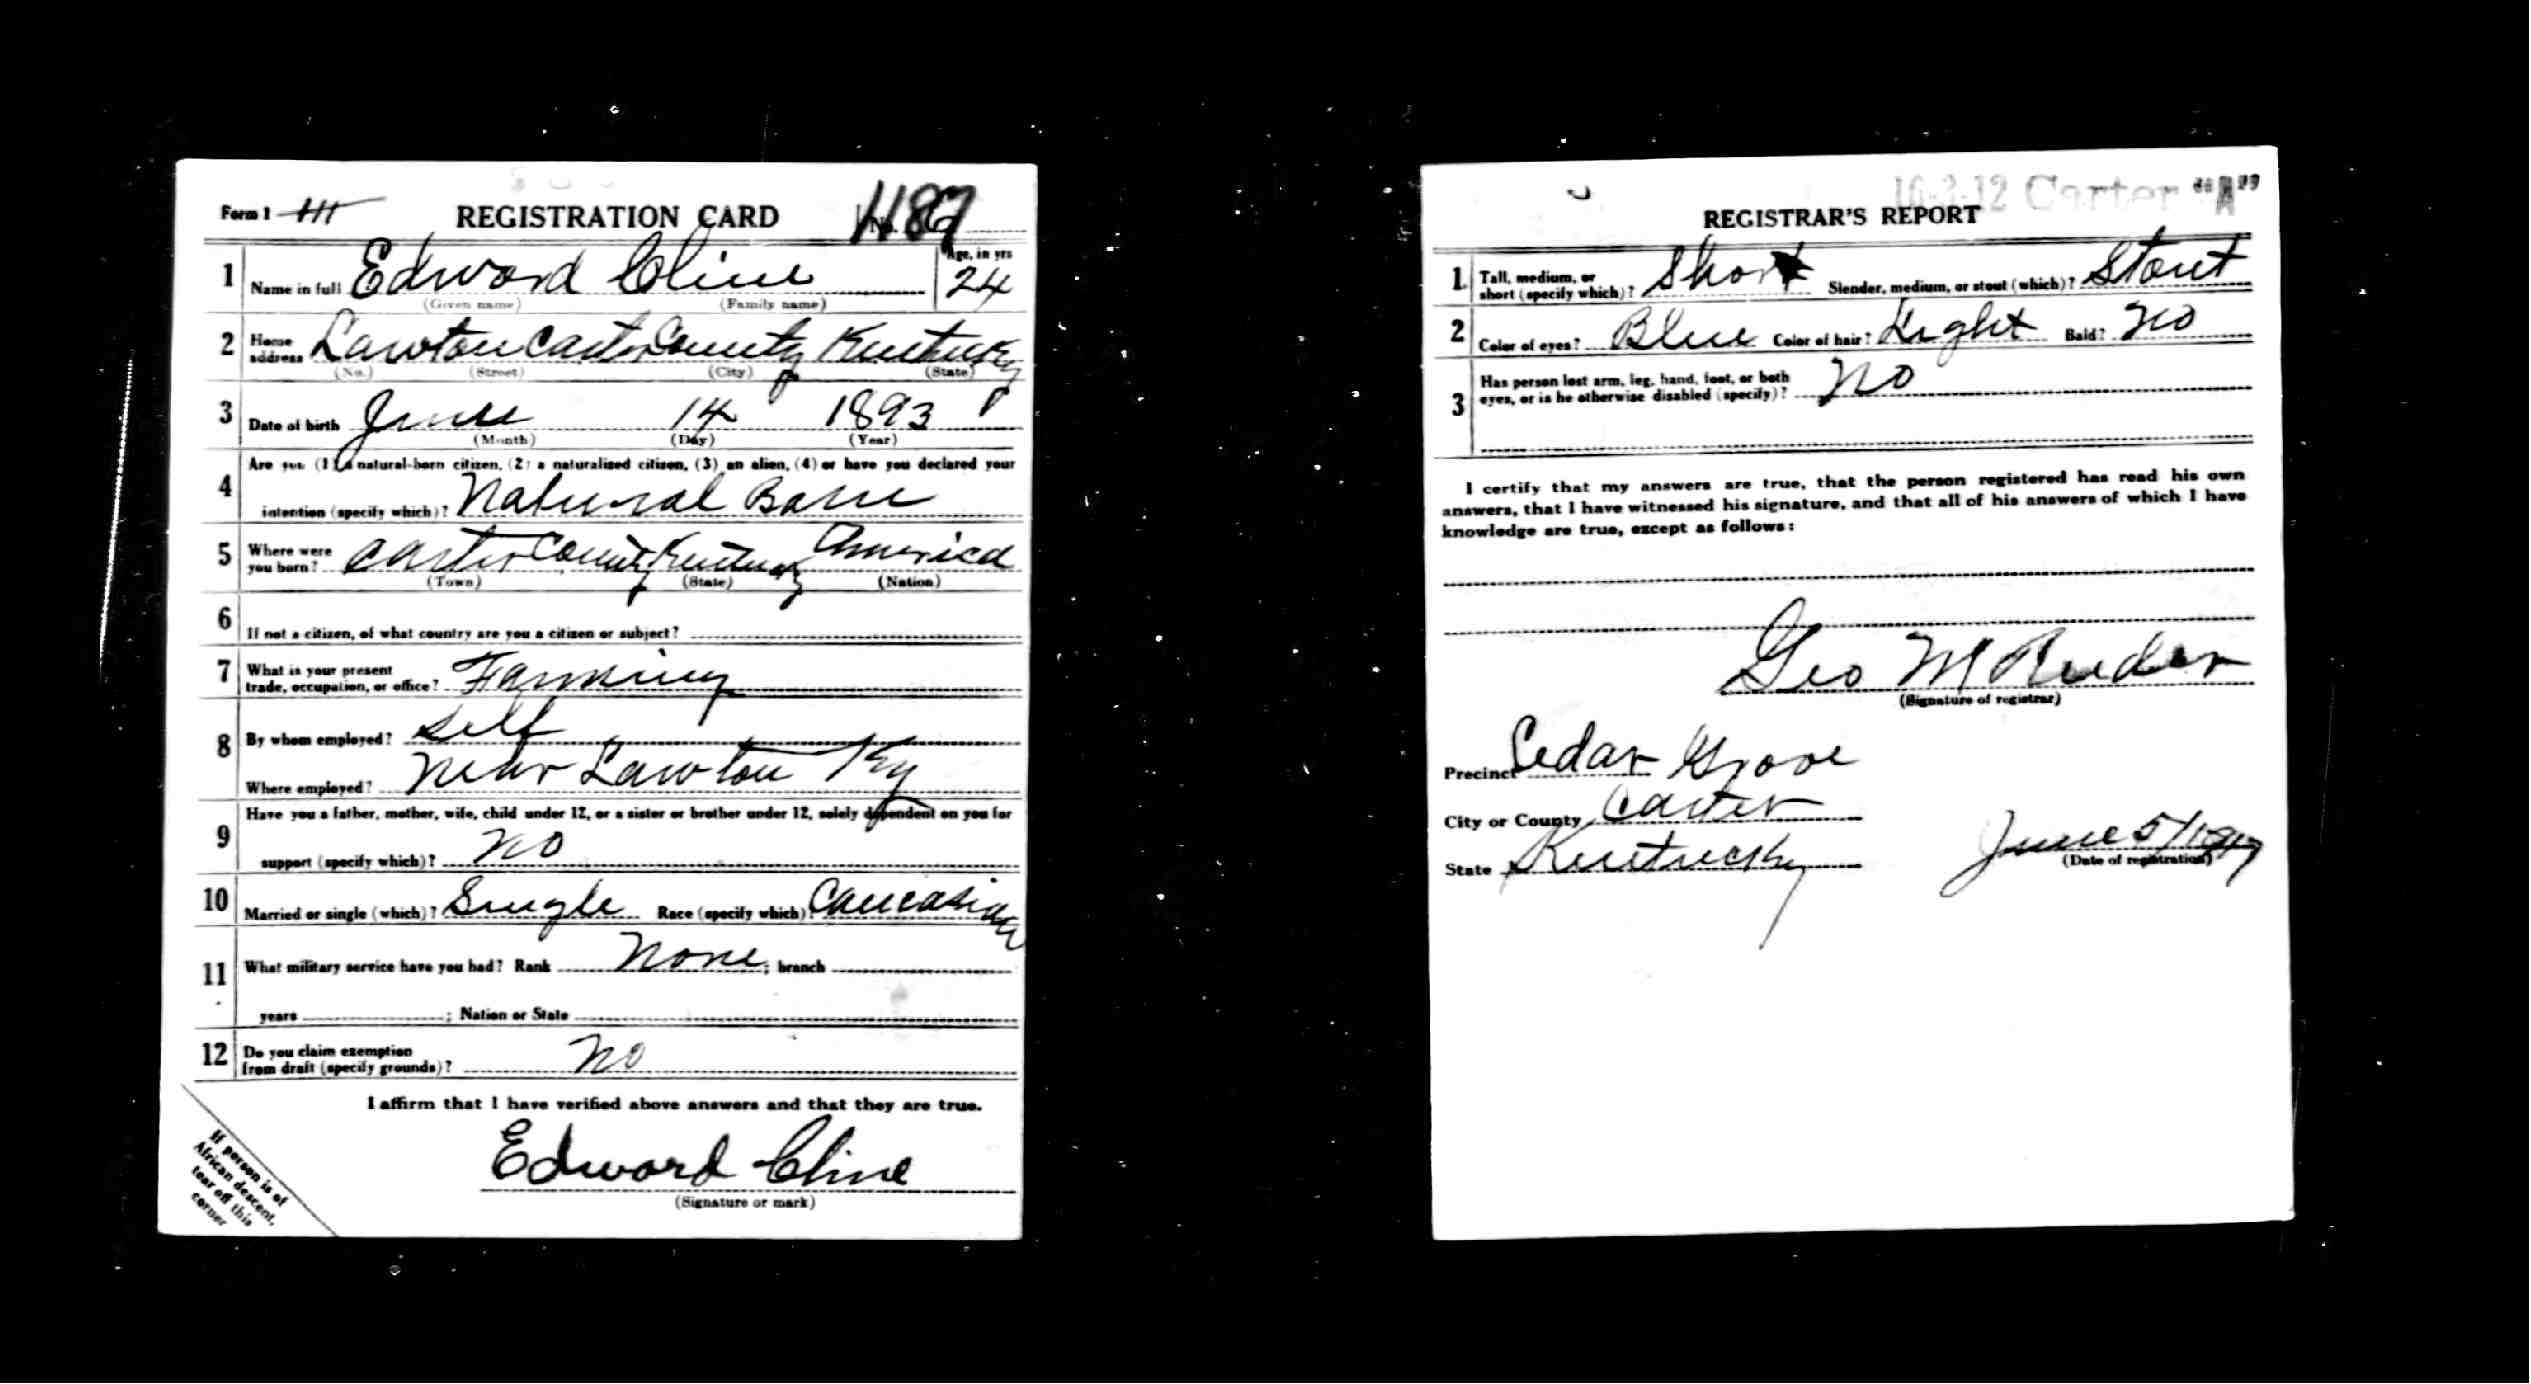 Form 1 REGISTRATION CARD No. 1187
1 Name in full Edward Cline Age, in yrs 24
(Given name) (Family name)
2 Home address Lawton Carter County Kentucky
(No.) (Street) (City) (State)
3 Date of birth June 14 1893
(Month) (Day) (Year)
4 Are you (1) a natural-born citizen, (2) a naturalized citizen, (3) an alien, (4) or have you declared your
intention (specify which)? Natural Born
5 Where were you born? Carter County Kentucky America
(Town) (State) (Nation)
6 If not a citizen, of what country are you a citizen or subject?
7 What is your present trade, occupation, or office? Farming
8 By whom employed? Self
Where employed? Near Lawton Ky
9 Have you a father, mother, wife, child under 12, or a sister or brother under 12, solely dependent on you for
support (specify which)? no
10 Married or single (which)? Single Race (specify which)? Caucasian
11 What military service have you had? Rank None; branch
years ; Nation or State
12 Do you claim exemption from draft (specify grounds)? no
I affirm that I have verified above answers and that they are true.
Edward Cline
(Signature or mark)
If person is of
African descent,
tear off this
corner
16-3-12 Carter A
REGISTRAR'S REPORT
1 Tall, medium, or short (specify which)? Short Slender, medium, or stout (which)? Stout
2 Color of eyes? Blue Color of hair? Light Bald? no
3 Has person lost arm, leg, hand, foot, or both eyes, or is he otherwise disabled (specify)? no
I certify that my answers are true, that the person registered has read his own
answers, that I have witnessed his signature, and that all of his answers of which I have
knowledge are true, except as follows:
Geo M
(Signature of registrar)
Precinct Cedar Grove
City or County Carter
State Kentucky June 5/1917
(Date of registration)